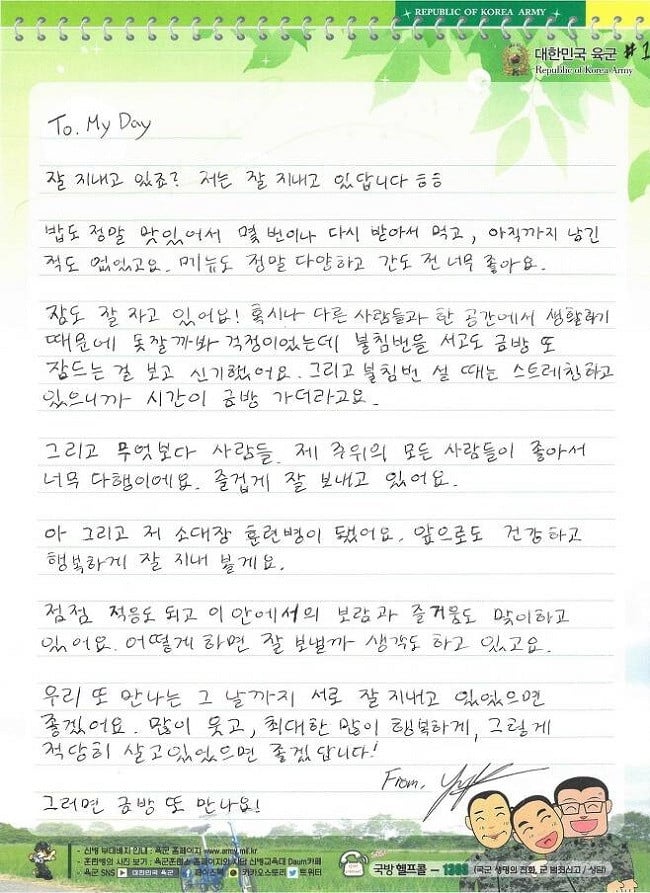 REPUBLIC OF KOREA ARMY
대한민국 육군 #1
Republic of Korea Army
To. My Day
잘 지내고 있죠? 저는 잘 지내고 있답니다 ㅎㅎ
밥도 정말 맛있어서 몇 번이나 다시 받아서 먹고, 아직까지 남긴
적도 없었고요. 메뉴도 정말 다양하고 간도 전 너무 좋아요.
잠도 잘 자고 있어요! 혹시나 다른 사람들과 한 공간에서 생활하기
때문에 못잘까봐 걱정이었는데 불침번을 서고도 금방 또
잠드는 걸 보고 신기했어요. 그리고 불침번 설 때는 스트레칭하고
있으니까 시간이 금방 가더라고요.
그리고 무엇보다 사람들. 제 주위의 모든 사람들이 좋아서
너무 다행이에요. 즐겁게 잘 보내고 있어요.
아 그리고 저 소대장 훈련병이 됐어요. 앞으로도 건강하고
행복하게 잘 지내 볼게요.
점점 적응도 되고 이 안에서의 보람과 즐거움도 맞이하고
있어요. 어떻게 하면 잘 보낼까 생각도 하고 있고요.
우리 또 만나는 그 날까지 서로 잘 지내고 있었으면
좋겠어요. 많이 웃고, 최대한 많이 행복하게, 그렇게
적당히 살고있었으면 좋겠답니다!
From.
그러면 금방 또 만나요!
- 신병 부대배치 안내 : 육군 홈페이지 www.army.mil.kr
- 훈련병의 사진 보기 : 육군훈련소 홈페이지와 사단 신병교육대 Daum카페
- 육군 SNS 대한민국 육군 페이스북 카카오스토리 트위터
국방헬프콜 - 1303 (국군 생명의 전화, 군 범죄신고 / 상담)